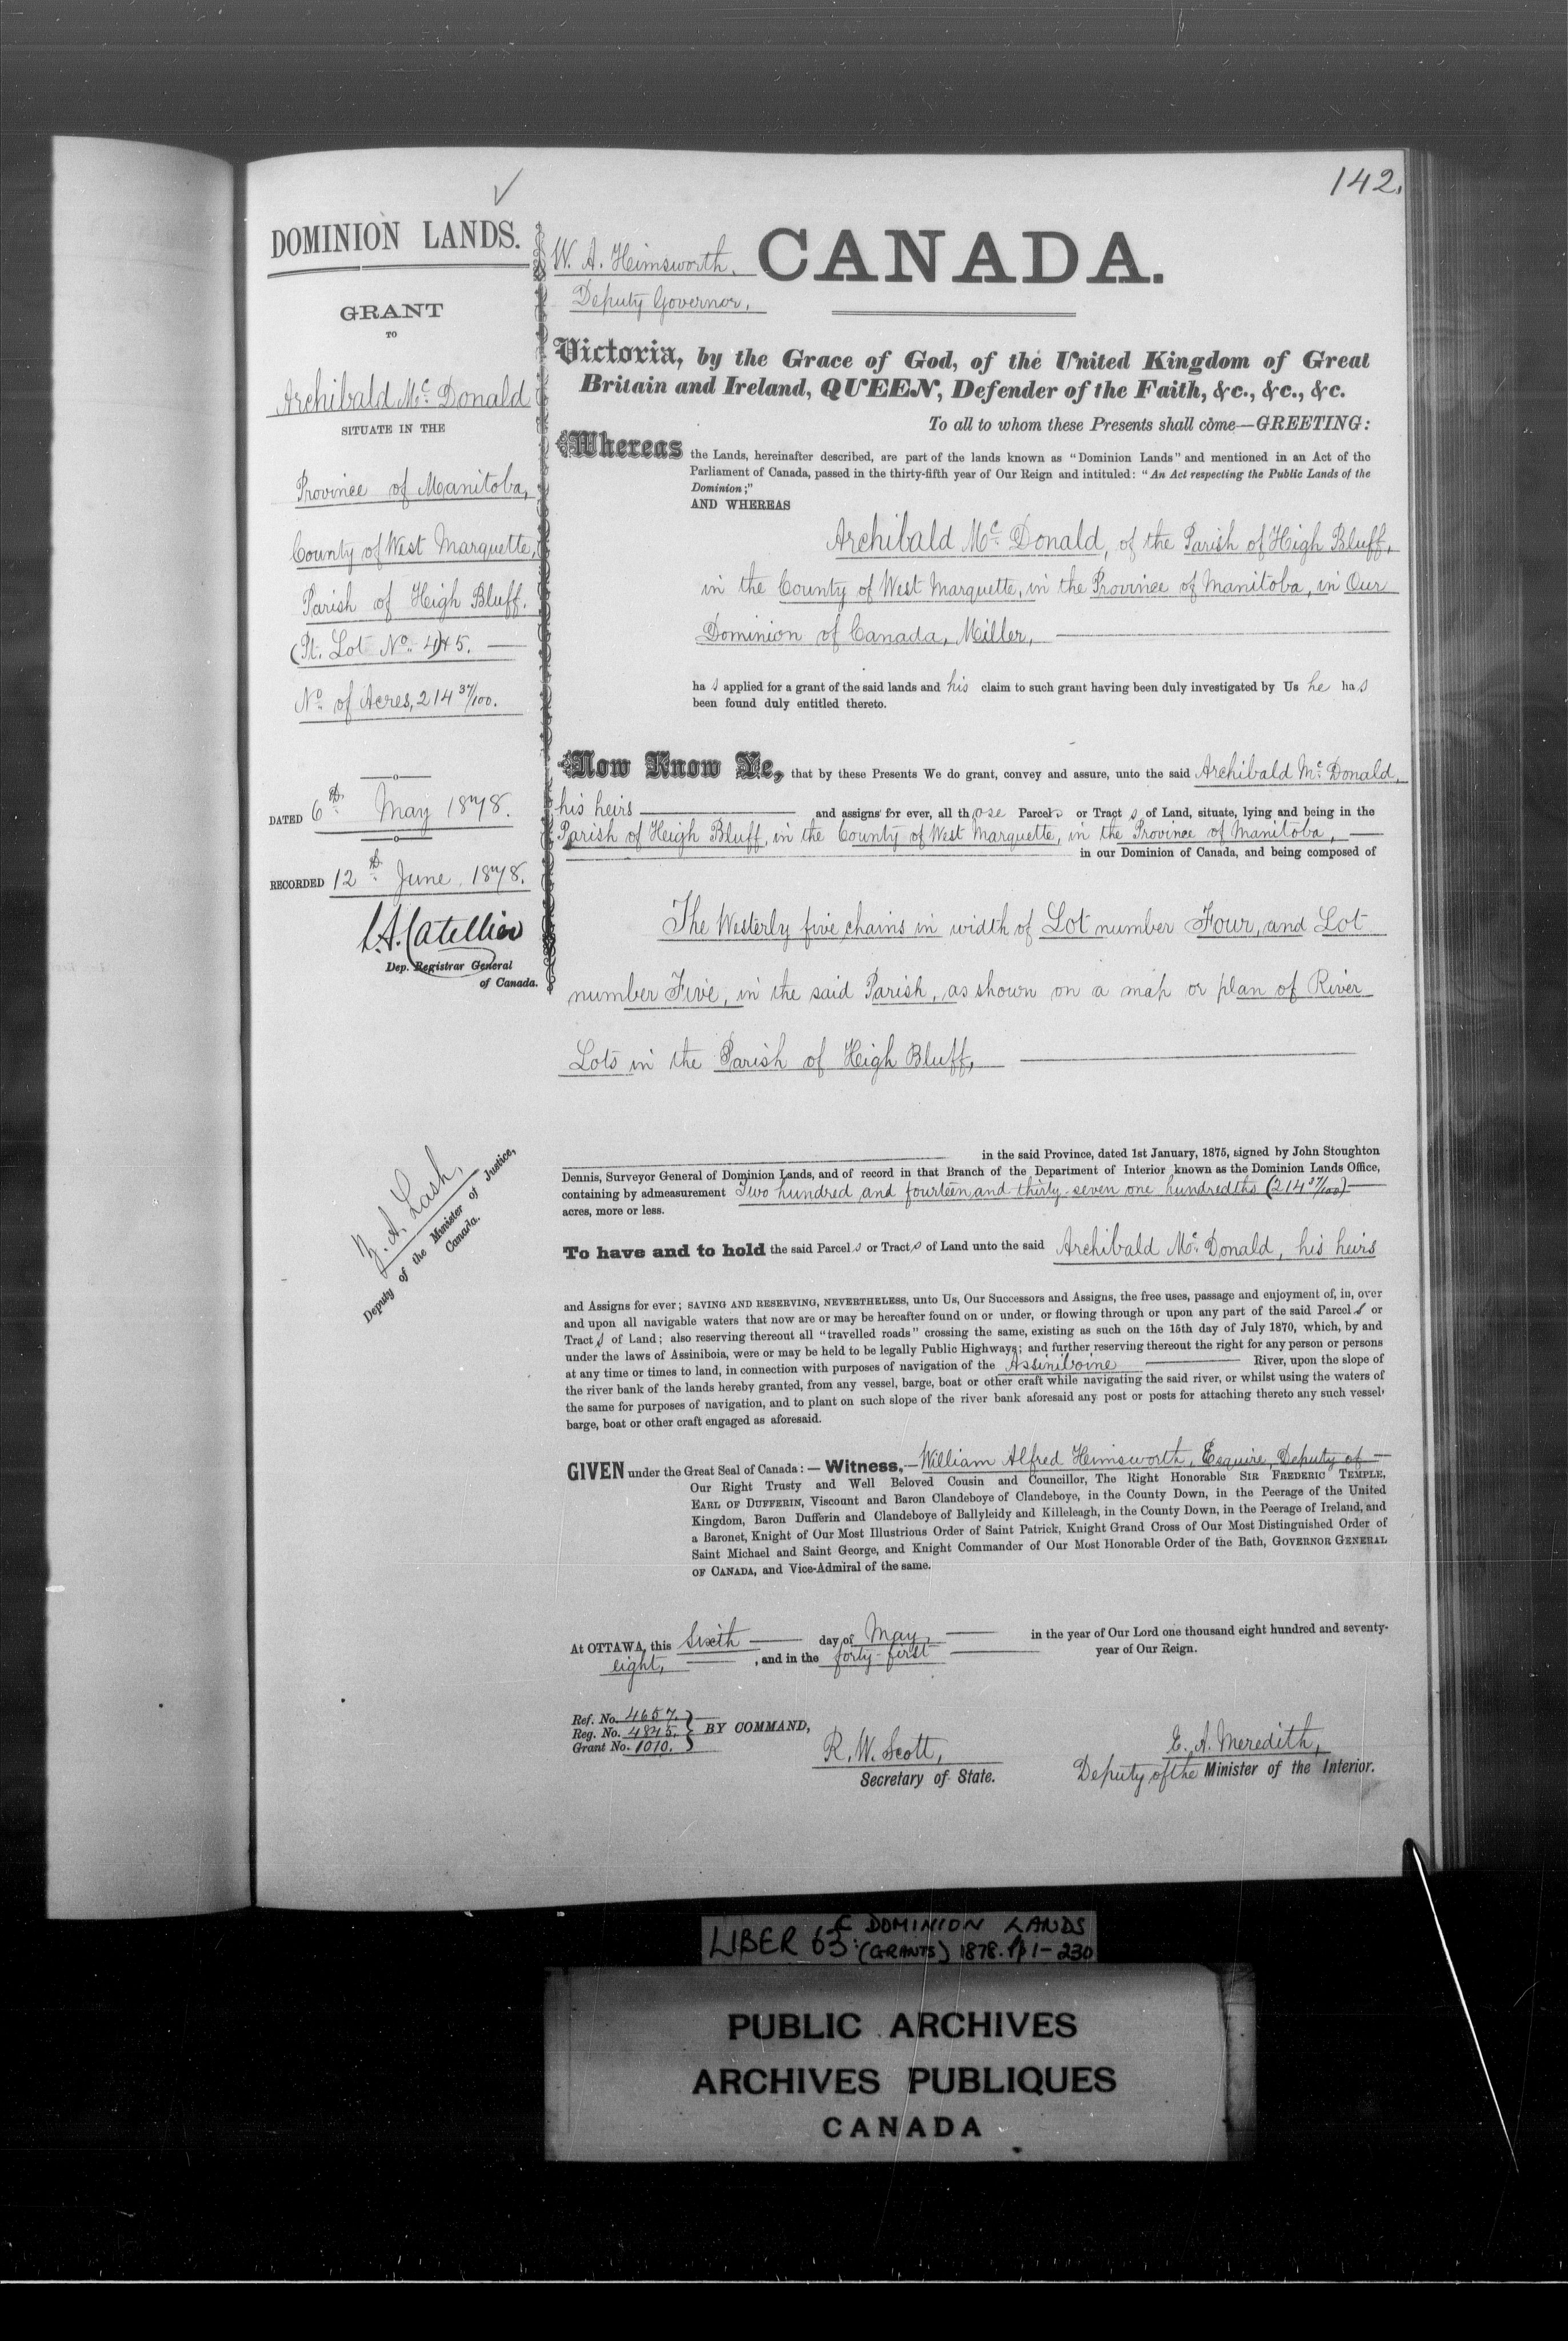 142.
DOMINION LANDS.
GRANT
TO
Archibald Mc Donald
SITUATE IN THE
Province of Manitoba,
County of West Marquette,
Parish of High Bluff.
(Pt. Lot No. 4) & 5.
No of Acres, 214 37/100.
DATED 6th May 1878.
RECORDED 12th June, 1878.
L.A. Catellier
Dep. Registrar General
of Canada.
Z. A. Lash,
Deputy of the Minister of Justice,
Canada.
W. A. Himsworth,
Deputy Governor,
CANADA.
Victoria, by the Grace of God, of the United Kingdom of Great
Britain and Ireland, QUEEN, Defender of the Faith, &c., &c., &c.
To all to whom these Presents shall come—GREETING:
Whereas the Lands, hereinafter described, are part of the lands known as "Dominion Lands" and mentioned in an Act of the
Parliament of Canada, passed in the thirty-fifth year of Our Reign and intituled: "An Act respecting the Public Lands of the
Dominion;"
AND WHEREAS
Archibald Mc Donald, of the Parish of High Bluff,
in the County of West Marquette, in the Province of Manitoba, in Our
Dominion of Canada, Miller,
has applied for a grant of the said lands and his claim to such grant having been duly investigated by Us he has
been found duly entitled thereto.
Now Know Ye, that by these Presents We do grant, convey and assure, unto the said Archibald Mc Donald,
his heirs and assigns for ever, all those Parcels or Tracts of Land, situate, lying and being in the
Parish of High Bluff, in the County of West Marquette, in the Province of Manitoba,
in our Dominion of Canada, and being composed of
The Westerly five chains in width of Lot number Four, and Lot
number Five, in the said Parish, as shown on a map or plan of River
Lots in the Parish of High Bluff,
in the said Province, dated 1st January, 1875, signed by John Stoughton
Dennis, Surveyor General of Dominion Lands, and of record in that Branch of the Department of Interior known as the Dominion Lands Office,
containing by admeasurement Two hundred and fourteen and thirty-seven one hundredths (214 37/100)
acres, more or less.
To have and to hold the said Parcels or Tracts of Land unto the said Archibald Mc Donald, his heirs
and Assigns for ever; SAVING AND RESERVING, NEVERTHELESS, unto Us, Our Successors and Assigns, the free uses, passage and enjoyment of, in, over
and upon all navigable waters that now are or may be hereafter found on or under, or flowing through or upon any part of the said Parcels or
Tracts of Land; also reserving thereout all "travelled roads" crossing the same, existing as such on the 15th day of July 1870, which, by and
under the laws of Assiniboia, were or may be held to be legally Public Highways; and further reserving thereout the right for any person or persons
at any time or times to land, in connection with purposes of navigation of the Assiniboine River, upon the slope of
the river bank of the lands hereby granted, from any vessel, barge, boat or other craft while navigating the said river, or whilst using the waters of
the same for purposes of navigation, and to plant on such slope of the river bank aforesaid any post or posts for attaching thereto any such vessel,
barge, boat or other craft engaged as aforesaid.
GIVEN under the Great Seal of Canada:— Witness,—William Alfred Himsworth, Esquire, Deputy of
Our Right Trusty and Well Beloved Cousin and Councillor, The Right Honorable SIR FREDERIC TEMPLE,
EARL OF DUFFERIN, Viscount and Baron Clandeboye of Clandeboye, in the County Down, in the Peerage of the United
Kingdom, Baron Dufferin and Clandeboye of Ballyleidy and Killeleagh, in the County Down, in the Peerage of Ireland, and
a Baronet, Knight of Our Most Illustrious Order of Saint Patrick, Knight Grand Cross of Our Most Distinguished Order of
Saint Michael and Saint George, and Knight Commander of Our Most Honorable Order of the Bath, GOVERNOR GENERAL
OF CANADA, and Vice-Admiral of the same.
At OTTAWA, this Sixth day of May, in the year of Our Lord one thousand eight hundred and seventy-
eight, , and in the forty-first year of Our Reign.
Ref. No. 4657.
Reg. No. 4845.
Grant No. 1010.
BY COMMAND,
R. W. Scott,
Secretary of State.
E. A. Meredith,
Deputy of the Minister of the Interior.
LIBER 63C: DOMINION LANDS
(GRANTS) 1878. pp 1-230
PUBLIC ARCHIVES
ARCHIVES PUBLIQUES
CANADA